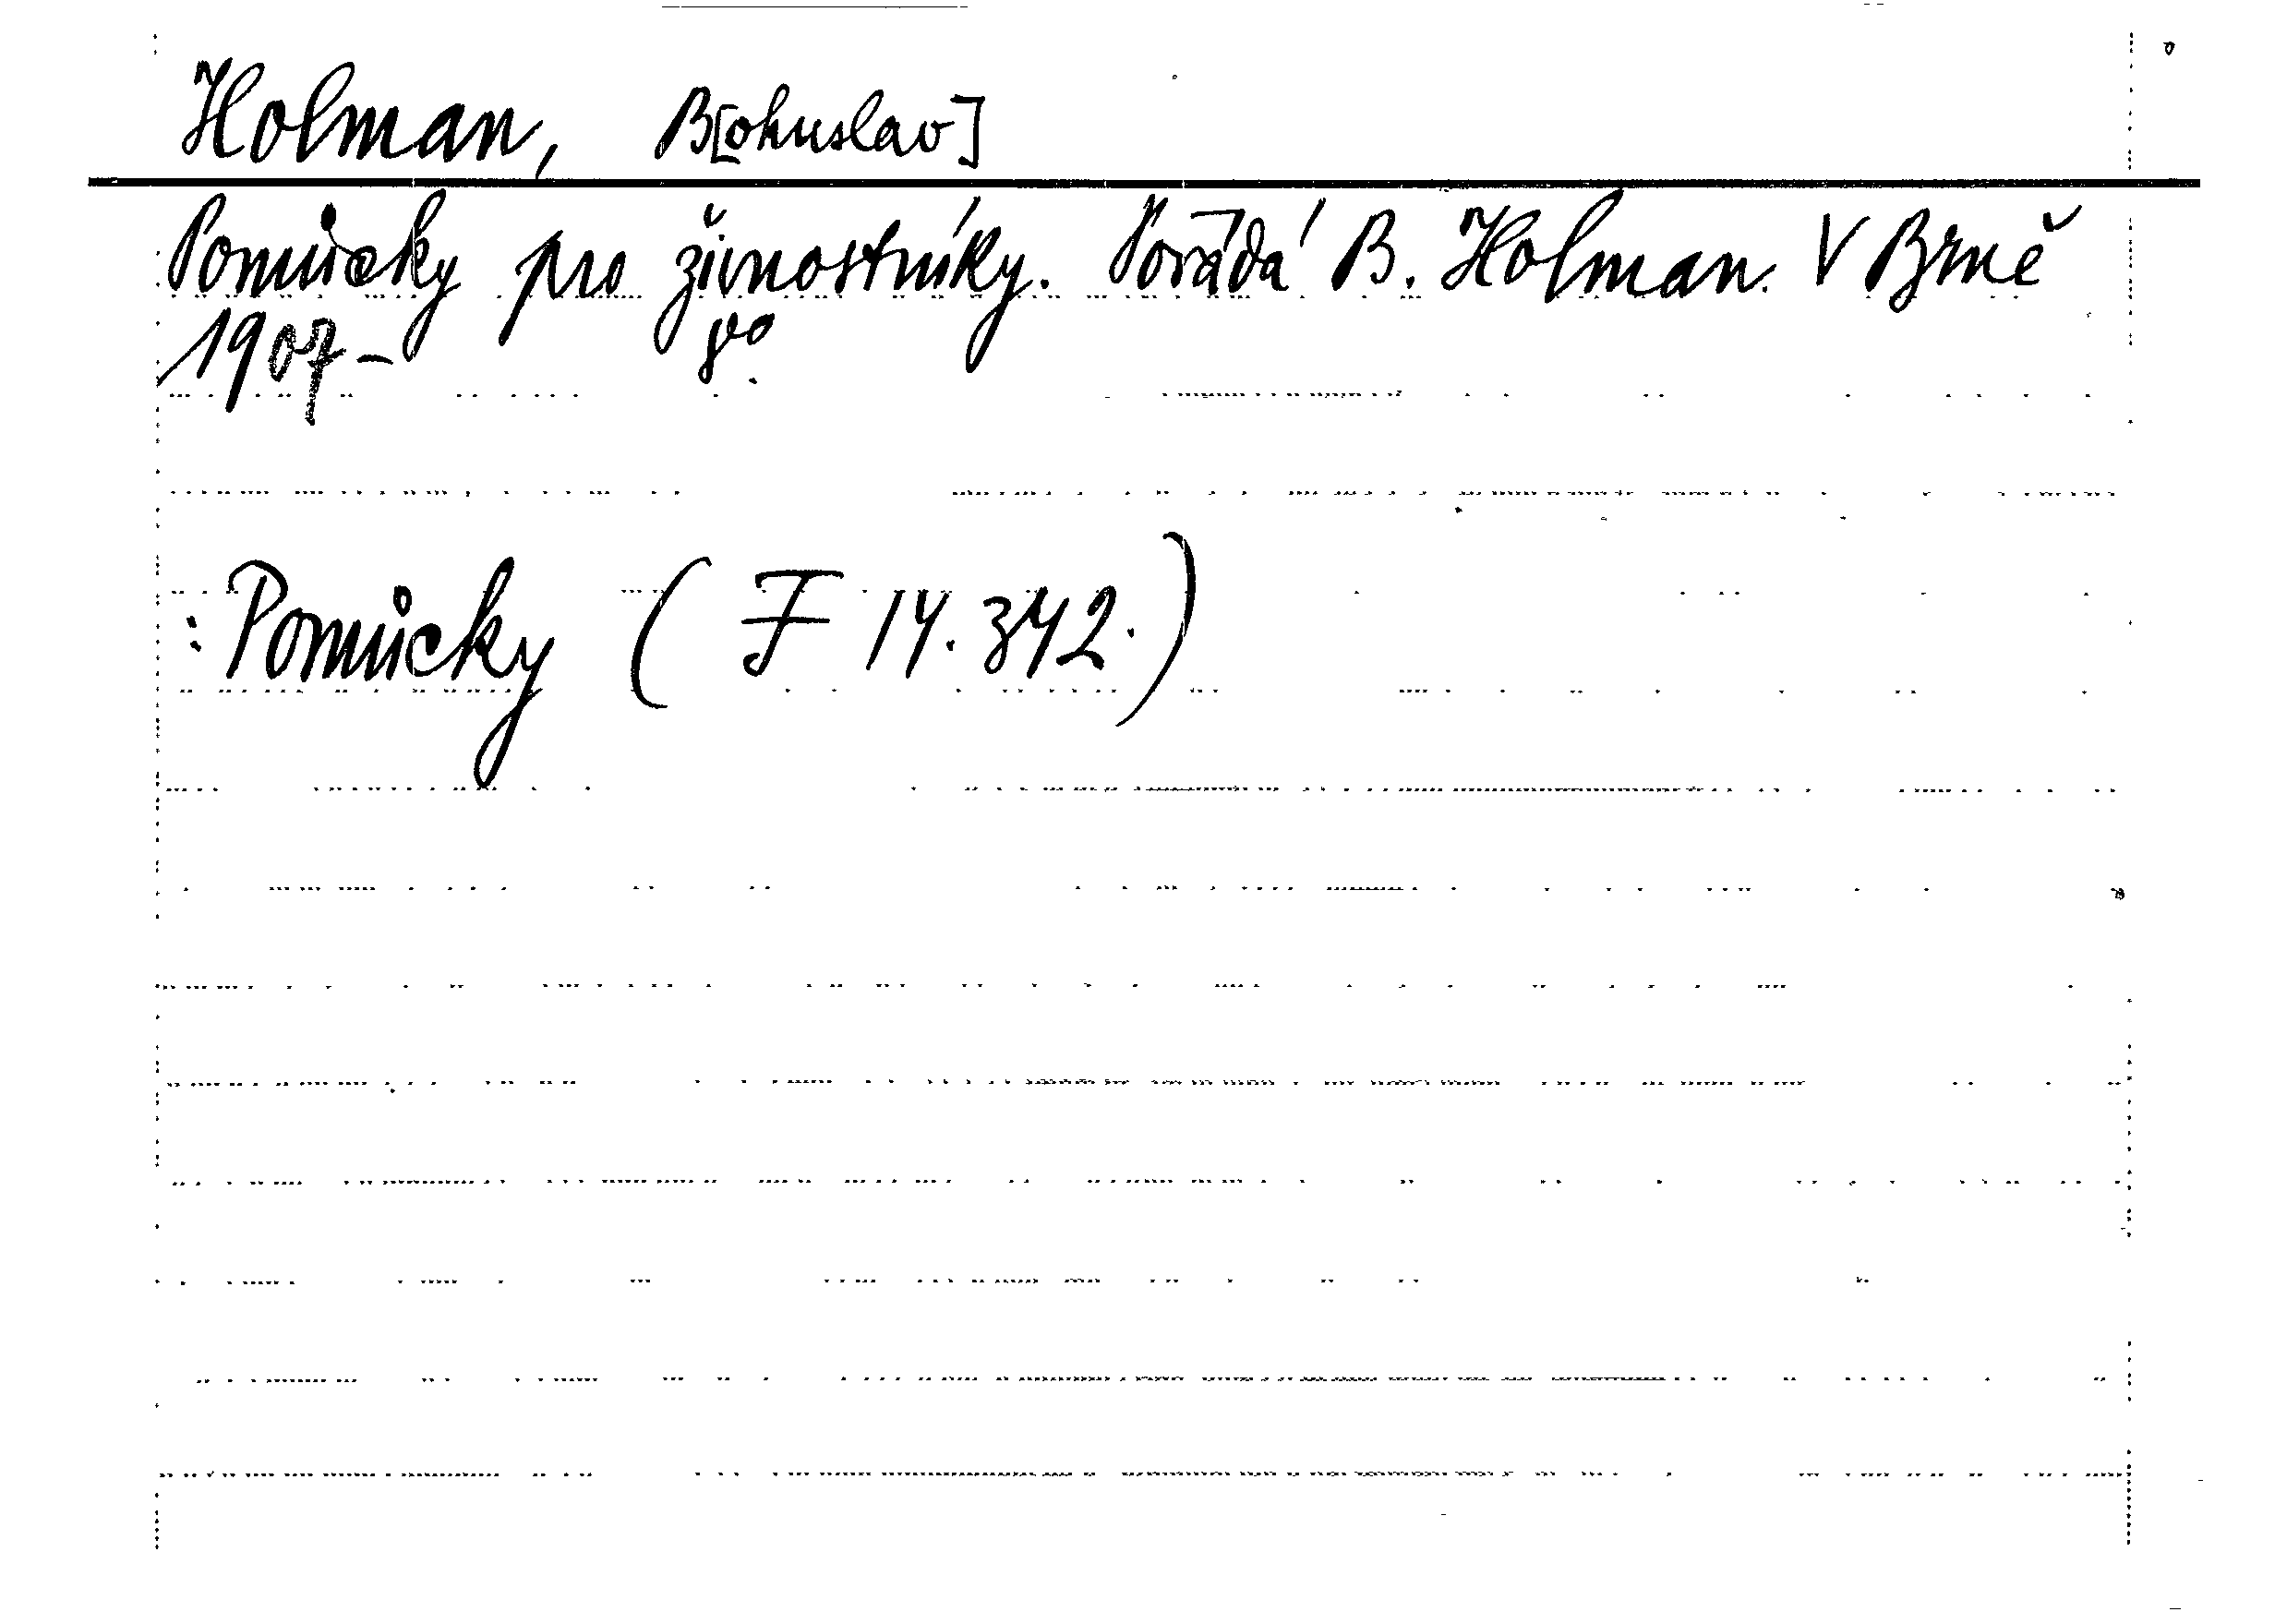 Holman, B[ohuslav]
Pomůcky pro živnostníky. Pořádá B. Holman. V Brně
1907- 8°.
: Pomůcky (F 14.342.)